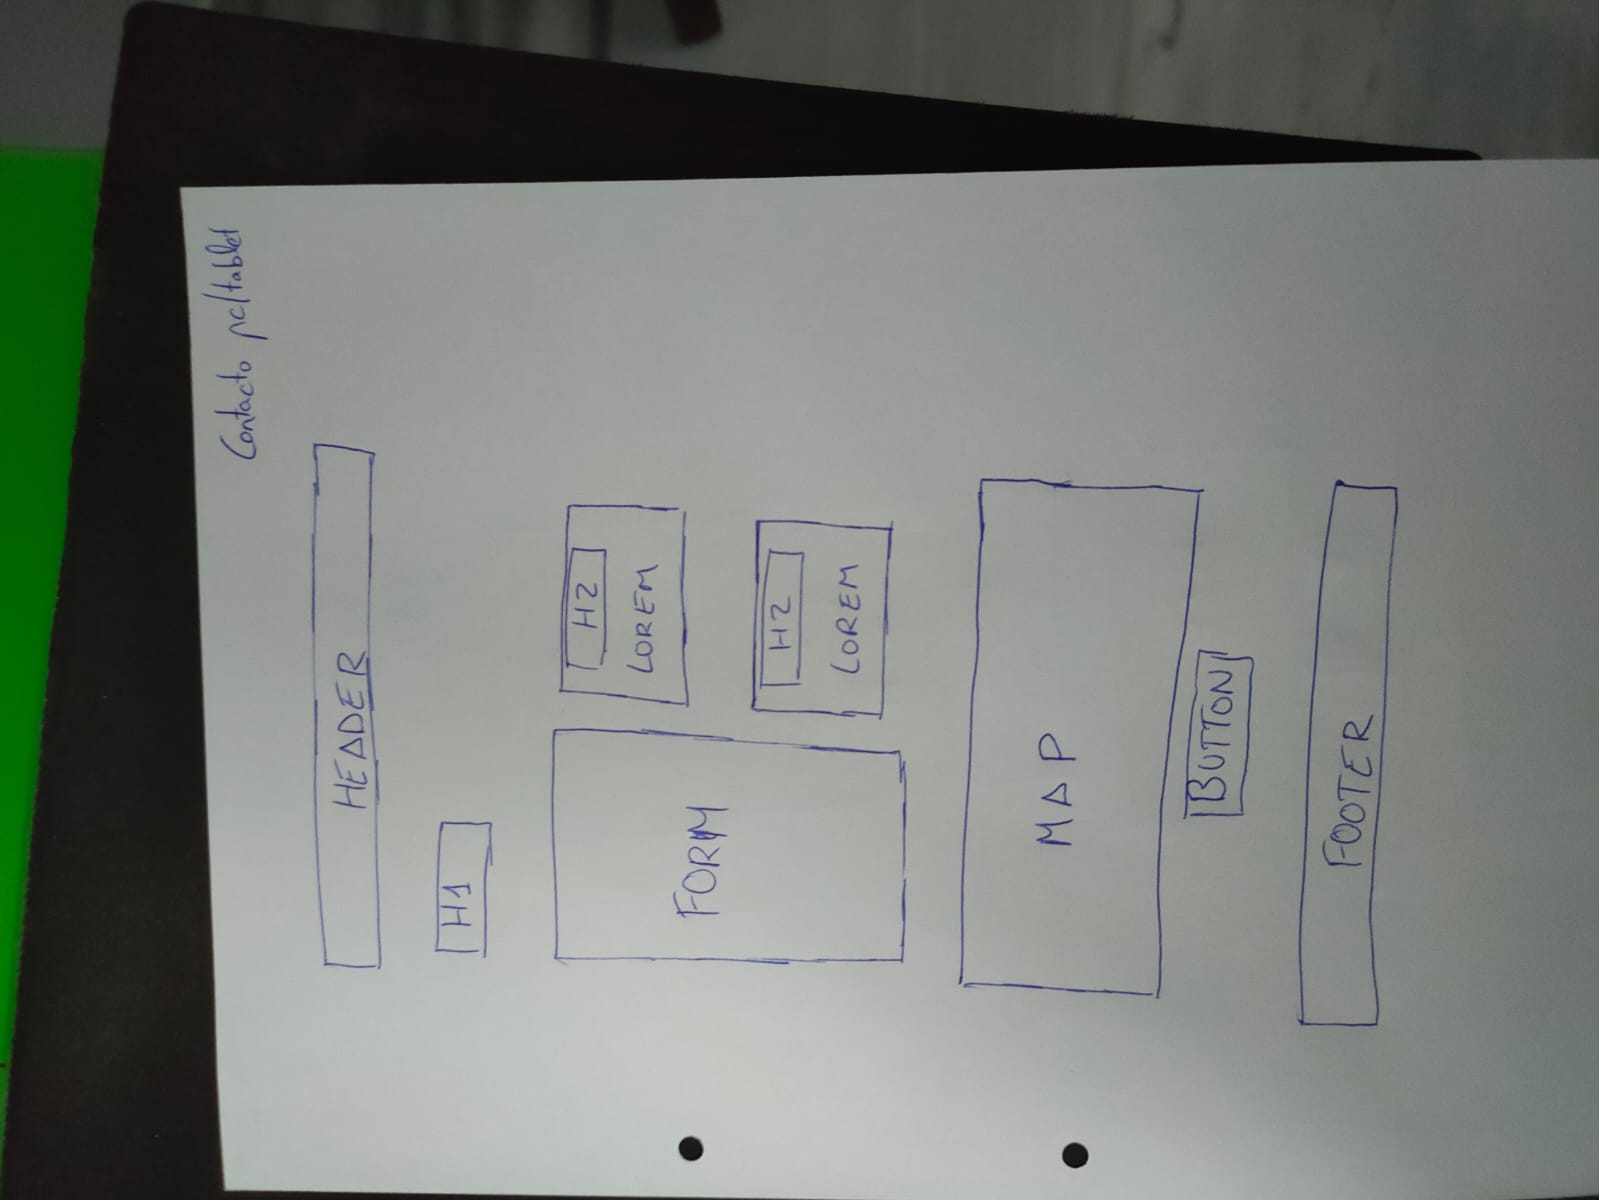 Contacto pc/tablet
HEADER
H1
FORM
H2
LOREM
H2
LOREM
MAP
BUTTON
FOOTER